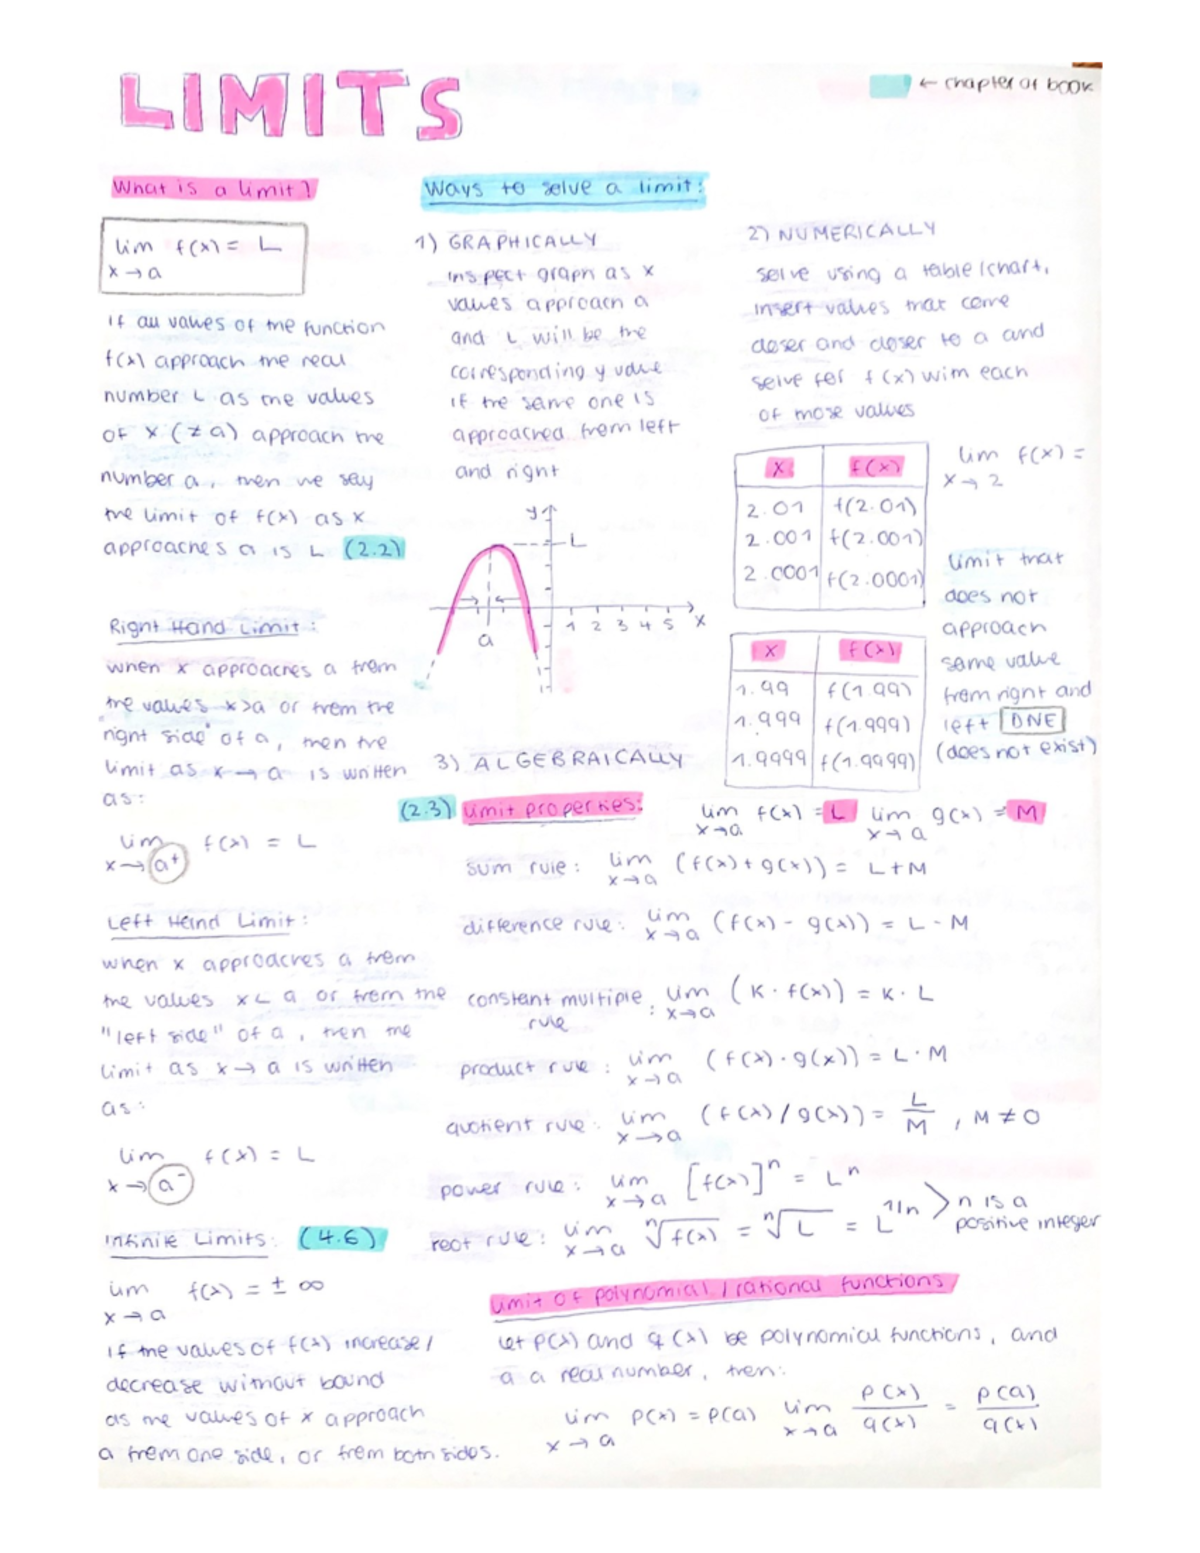 LIMITS
← chapter of book
What is a limit?
lim f(x) = L
x → a
if all values of the function
f(x) approach the real
number L as the values
of x (≠ a) approach the
number a, then we say
the limit of f(x) as x
approaches a is L (2.2)
Right Hand Limit:
when x approaches a from
the values x>a or from the
"right side" of a, then the
limit as x → a is written
as:
lim f(x) = L
x → a⁺
Left Hand Limit:
when x approaches a from
the values x < a or from the
"left side" of a, then the
limit as x → a is written
as:
lim f(x) = L
x → a⁻
Infinite Limits: (4.6)
lim f(x) = ± ∞
x → a
if the values of f(x) increase/
decrease without bound
as the values of x approach
a from one side, or from both sides.
Ways to solve a limit:
1) GRAPHICALLY
inspect graph as x
values approach a
and L will be the
corresponding y value
if the same one is
approached from left
and right
y
L
a
1 2 3 4 5 x
2) NUMERICALLY
solve using a table/chart,
insert values that come
closer and closer to a and
solve for f(x) with each
of those values
x f(x)
2.01 f(2.01)
2.001 f(2.001)
2.0001 f(2.0001)
lim f(x) =
x → 2
x f(x)
1.99 f(1.99)
1.999 f(1.999)
1.9999 f(1.9999)
limit that
does not
approach
same value
from right and
left DNE
(does not exist)
3) ALGEBRAICALLY
(2.3) limit properties: lim f(x) = L lim g(x) = M
x→a x→a
sum rule: lim (f(x)+g(x)) = L+M
x→a
difference rule: lim (f(x) - g(x)) = L - M
x→a
constant multiple : lim (K · f(x)) = K · L
rule x→a
product rule : lim (f(x) · g(x)) = L · M
x→a
quotient rule: lim (f(x)/g(x)) = L/M , M ≠ 0
x→a
power rule: lim [f(x)]ⁿ = Lⁿ
x→a
root rule: lim ⁿ√f(x) = ⁿ√L = L^1/n
x→a
> n is a
positive integer
limit of polynomial / rational functions
let p(x) and q(x) be polynomial functions, and
a a real number, then:
lim p(x) = p(a) lim p(x)/q(x) = p(a)/q(x)
x → a x→a